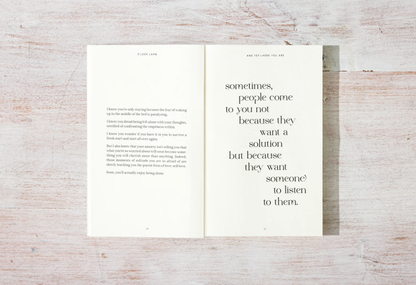 I know you're only staying because the fear of waking
up in the middle of the bed is paralyzing.
I know you dread being left alone with your thoughts,
terrified of confronting the emptiness within.
I know you wonder if you have it in you to not two a
fresh start and start all over again.
But I also know that your anxiety isn't telling you that
what you're so worried about will soon become some-
thing you will cherish more than anything. Indeed,
those moments of solitude you are so afraid of are
slowly teaching you the purest form of love: self-love.
Soon, you'll actually enjoy being alone.
AND YET, HERE YOU ARE
sometimes,
people come
to you not
because they
want a
solution
but because
they want
someone
to listen
to them.